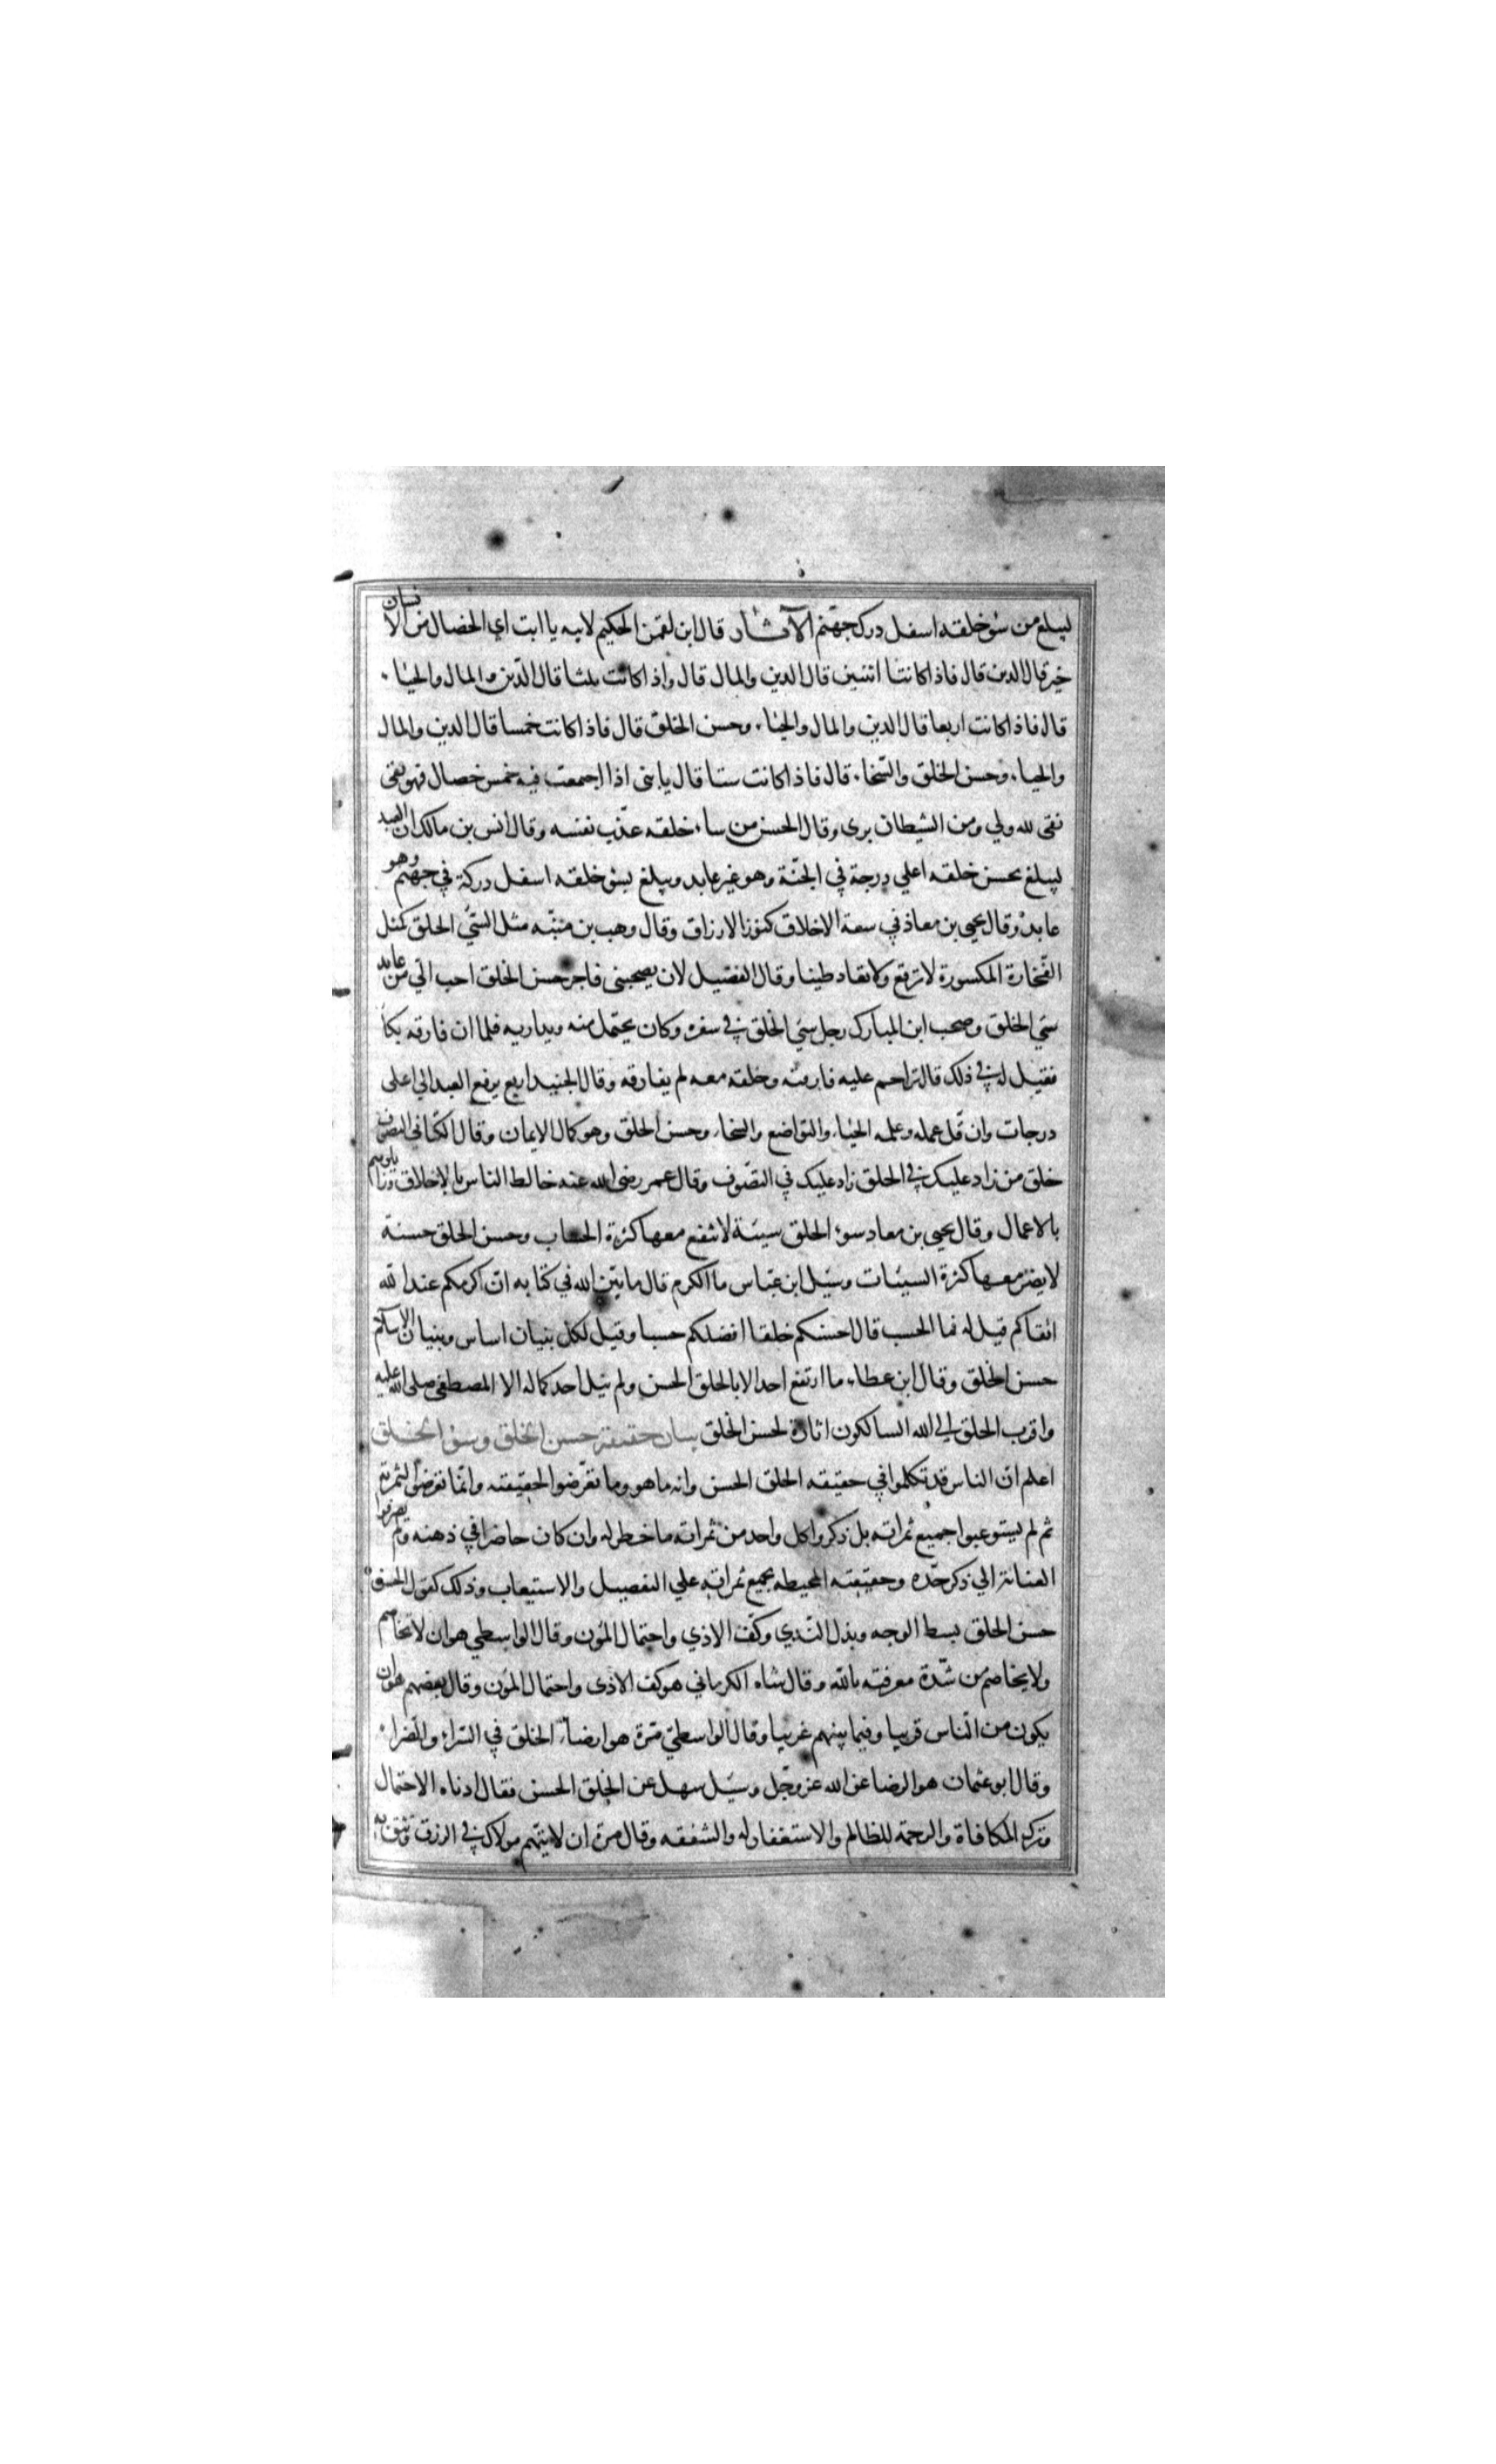 ليبلغ من سوء خلقه اسفل درك جهنم الآثار قال ابن لقمن الحكيم لابيه يا ابت اي الخصال من الانسان
خير قال الدين قال فاذا كانتا اثنتين قال الدين والمال قال واذا كانت ثلثا قال الدين والمال والحياء
قال فاذا كانت اربعا قال الدين والمال والحياء وحسن الخلق قال فاذا كانت خمسا قال الدين والمال
والحياء وحسن الخلق والسخاء قال فاذا كانت ستا قال يا بنى اذا اجمعت فيه خمس خصال فهو تقى
نقى لله ولي ومن الشيطان برى وقال الحسن من ساء خلقه عذب نفسه وقال انس بن مالك ان العبد
ليبلغ بحسن خلقه اعلي درجة في الجنة وهو غير عابد ويبلغ بسوء خلقه اسفل دركة في جهنم وهو
عابد وقال يحيى بن معاذ في سعة الاخلاق كنوز الارزاق وقال وهب بن منبه مثل السئ الخلق كمثل
الفخارة المكسورة لا ترقع ولا تعاد طينا وقال الفضيل لان يصحبنى فاجر حسن الخلق احب الي من عابد
سئ الخلق وصحب ابن المبارك رجل سئ الخلق في سفره وكان يحتمل منه ويداريه فلما ان فارقه بكا
فقيل له في ذلك قال تراحم عليه فارقته وخلقه معه لم يفارقه وقال الجنيد اربع يرفع العبد الي اعلى
درجات وان قل عمله وعلمه الحياء والتواضع والسخاء وحسن الخلق وهو كمال الايمان وقال الكتاني التصوف
خلق من زاد عليك في الخلق زاد عليك في التصوف وقال عمر رضى الله عنه خالط الناس بالاخلاق وزايلوهم
بالاعمال وقال يحيى بن معاد سوء الخلق سيئة لا تنفع معها كثرة الحساب وحسن الخلق حسنة
لا يضر معها كثرة السيئات وسئل ابن عباس ما الكرم قال ما بين الله في كتابه ان اكرمكم عند الله
اتقاكم قيل له فما الحسب قال احسنكم خلقا افضلكم حسبا وقيل لكل بنيان اساس وبنيان الاسلام
حسن الخلق وقال ابن عطاء ما ارتفع احد الا بالخلق الحسن ولم ينل احد كماله الا المصطفى صلى الله عليه
واقرب الخلق الي الله السالكون اثاره لحسن الخلق بيان حقيقة حسن الخلق وسوء الخلق
اعلم ان الناس قد تكلموا في حقيقه الخلق الحسن وانه ما هو وما تعرضوا لحقيقته وانما تعرضوا لثمرته
ثم لم يستوعبوا جميع ثمراته بل ذكروا كل واحد من ثمراته ما خطر له وان كان حاضرا في ذهنه ولم يصرفوا
العناية الي ذكر حده وحقيقته المحيطه بجميع ثمراته علي التفصيل والاستيعاب وذلك كقول الحسن
حسن الخلق بسط الوجه وبذل الندي وكف الاذي واحتمال المؤن وقال الواسطي هو ان لا تخاصم
ولا يخاصم من شدة معرفته بالله وقال شاه الكرماني هو كف الاذى واحتمال المؤن وقال بعضهم هو ان
يكون من الناس قريبا وفيما بينهم غريبا وقال الواسطي مرة هو ارضاء الخلق في السراء والضراء
وقال ابو عثمان هو الرضا عن الله عز وجل وسئل سهل عن الخلق الحسن فقال ادناه الاحتمال
وترك المكافاة والرحمة للظالم والاستغفار له والشفقه وقال مرة ان لا يتهم مولاك في الرزق وتثق به